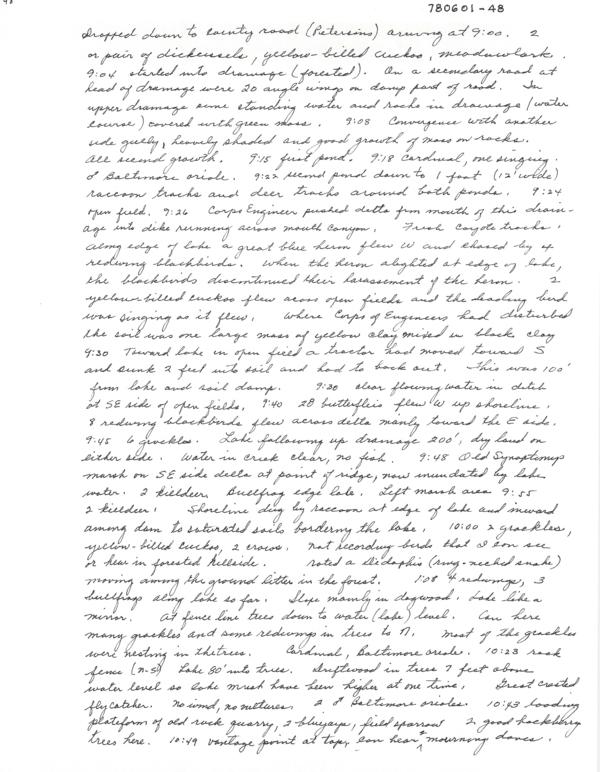 780601-48
Dropped down to county road (Petersons) arriving at 9:00. 2
or pair of dickcissels, yellow-billed cuckoo, meadowlark.
9:04 started into drainage (forested). On a secondary road at
head of drainage were 20 angle wings on damp part of road. In
upper drainage some standing water and rocks in drainage (water
course) covered with green moss. 9:08 Convergence with another
side gully, heavily shaded and good growth of moss on rocks.
All second growth. 9:15 first pond. 9:18 cardinal, one singing.
♂ Baltimore oriole. 9:22 second pond down to 1 foot (12' wide)
raccoon tracks and deer tracks around both ponds. 9:24
open field. 9:26 Corps Engineer pushed delta from mouth of this drain-
age into dike running across mouth canyon. Fresh coyote tracks.
Along edge of lake a great blue heron flew W and chased by 4
redwing blackbirds. When the heron alighted at edge of lake,
the blackbirds discontinued their harassement of the heron. 2
yellow-billed cuckoo flew across open fields and the leading bird
was singing as it flew. Where Corps of Engineers had disturbed
the soil was one large mass of yellow clay mixed in black clay
9:30 Toward lake in open field a tractor had moved toward S
and sunk 2 feet into soil and had to back out. This was 100'
from lake and soil damp. 9:30 clear flowing water in ditch
at SE side of open fields. 9:40 28 butterflies flew W up shoreline.
8 redwing blackbirds flew across delta mainly toward the E side.
9:45 6 grackles. Lake following up drainage 200', dry land on
either side. Water in creek clear, no fish. 9:48 Old Synaptomys
marsh on SE side delta at point of ridge, now inundated by lake
water. 2 killdeer. Bullfrog edge lake. Left marsh area 9:55
2 killdeer. Shoreline dug by raccoon at edge of lake and inward
among dam to saturated soils bordering the lake. 10:00 2 grackles,
yellow-billed cuckoo, 2 crows. Not recording birds that I can see
or hear in forested hillside. Noted a Diadophis (ring-necked snake)
moving among the ground litter in the forest. 1:08 4 redwings, 3
bullfrogs along lake so far. Slope mainly in dogwood. Lake like a
mirror. At fence line trees down to water (lake) level. Can hear
many grackles and some redwings in trees to N. Most of the grackles
were nesting in the trees. Cardinal, Baltimore oriole. 10:23 rock
fence (N-S) Lake 80' into trees. Driftwood in trees 7 feet above
water level so lake must have been higher at one time. Great crested
flycatcher. No wind, no 2 ♂ Baltimore orioles. 10:43 loading
plateform of old rock quarry, 2 bluejays, field sparrow 2 good hackberry
trees here. 10:49 vantage point at top, can hear mourning doves.